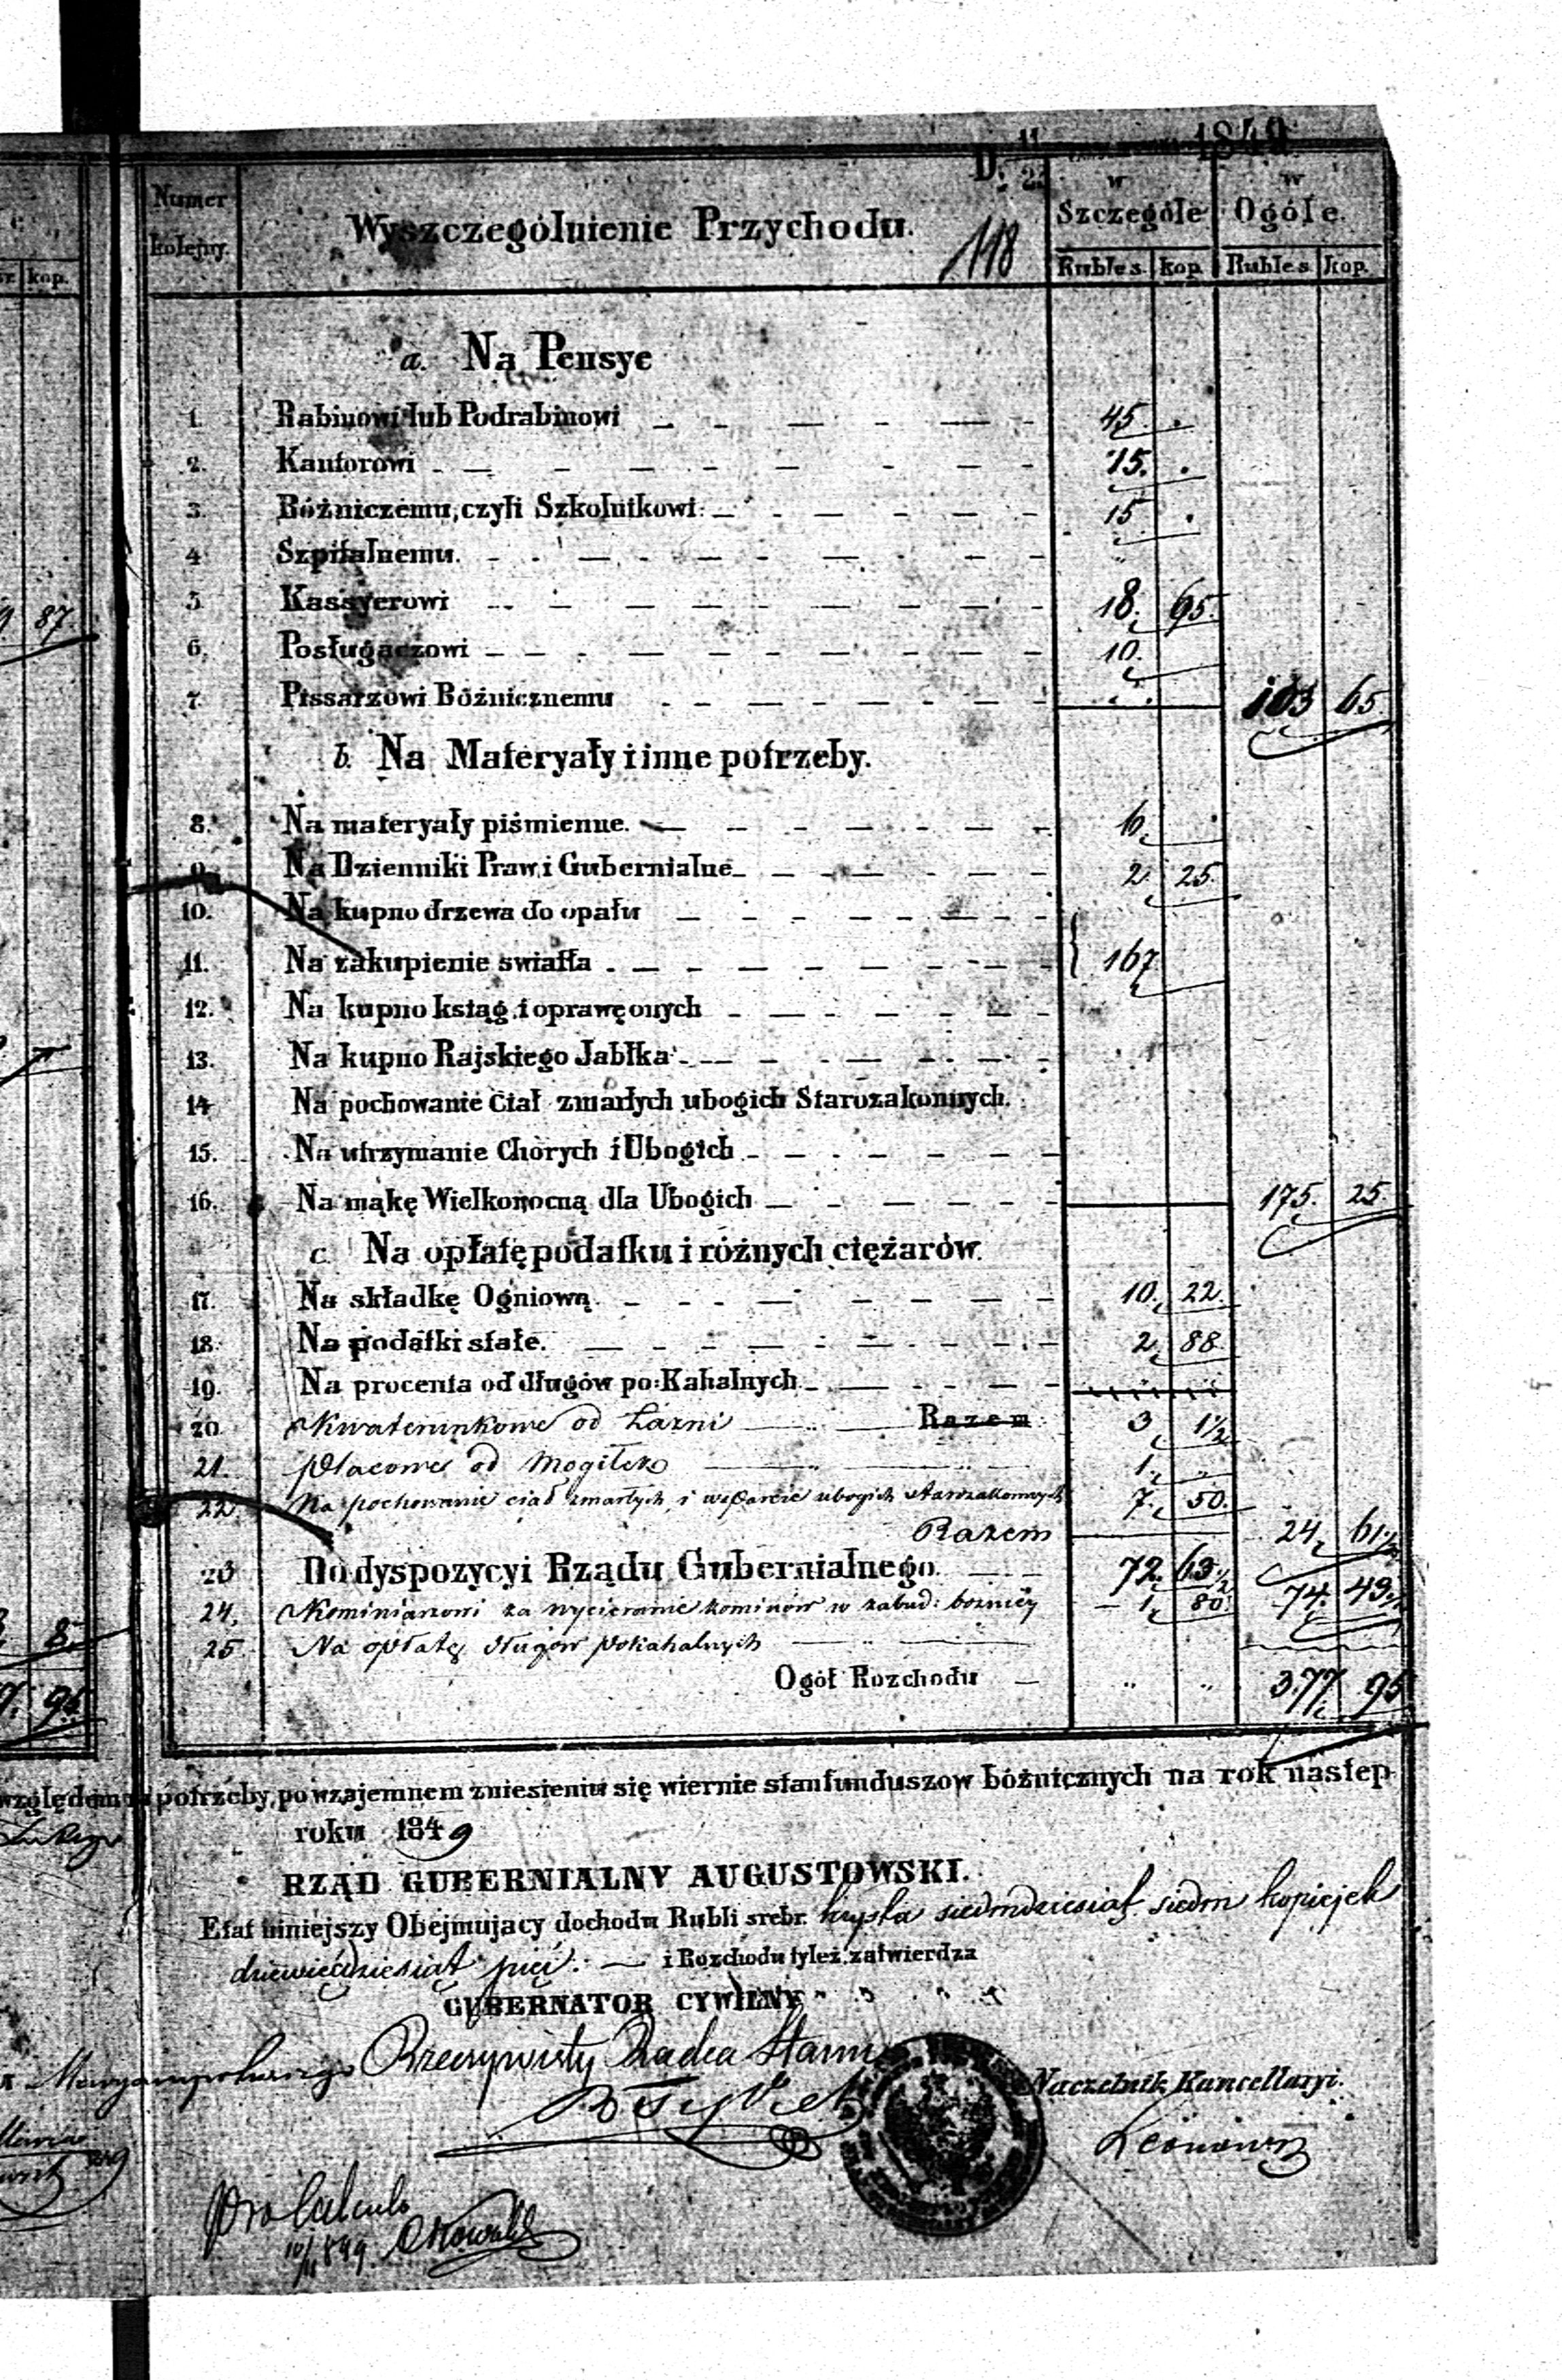 D. 11 1849
Numer kolejny. Wyszczególnienie Przychodu. 118 w Szczególe w Ogóle.
kop. Ruble s. kop. Ruble s. kop.
a. Na Pensye
1. Rabinowi lub Podrabinowi 45. .
2. Kantorowi 15. .
3. Bóżniczemu, czyli Szkolnikowi 15 .
4 Szpitalnemu.
5 Kassyerowi 18. 65.
87.
6. Posługaczowi 10.
7. Pissarzowi Bóżnicznemu 103 65.
b. Na Materyały i inne potrzeby.
8. Na materyały piśmienne. 6.
9. Na Dzienniki Praw i Gubernialne 2. 25.
10. Na kupno drzewa do opału
11. Na zakupienie swiatła 167
12. Na kupno ksiąg i oprawę onych
13. Na kupno Rajskiego Jabłka
14 Na pochowanie Ciał zmarłych ubogich Starozakonnych.
15. Na utrzymanie Chorych i Ubogich
16. Na mąkę Wielkonocną dla Ubogich 175. 25
c. Na opłatę podatku i różnych ciężarów.
17. Na składkę Ogniową 10. 22.
18. Na podatki stałe. 2. 88.
19. Na procenta od długów po: Kahalnych
20 Kwaterunkowe od Łazni Razem 3 1½
21. placowe od Mogiłek 1. "
22 Na pochowanie ciał zmarłych i wsparcie ubogich starozakonnych 7. 50.
Razem 24. 61½
23 Do dyspozycyi Rządu Gubernialnego. 72. 63½ 74. 43½
24. Kominiarzowi za wycieranie kominów w zabud: bożnicy 1. 80
25 Na opłatę długów pokahalnych
Ogół Rozchodu " " 377. 95
względem potrzeby, po wzajemnem zniesieniu się wiernie stan funduszow bóżnicznych na rok nastep
roku 1849
RZĄD GUBERNIALNY AUGUSTOWSKI.
Etat niniejszy Obejmujący dochodu Rubli srebr. trzysta siedmdziesiąt siedm kopiejek
dziewięćdziesiąt pięć. i Rozchodu tyleż zatwierdza
GUBERNATOR CYWILNY
Maryampolskiego Rzeczywisty Radca Stanu
Naczelnik Kancellaryi.
pro Calculo